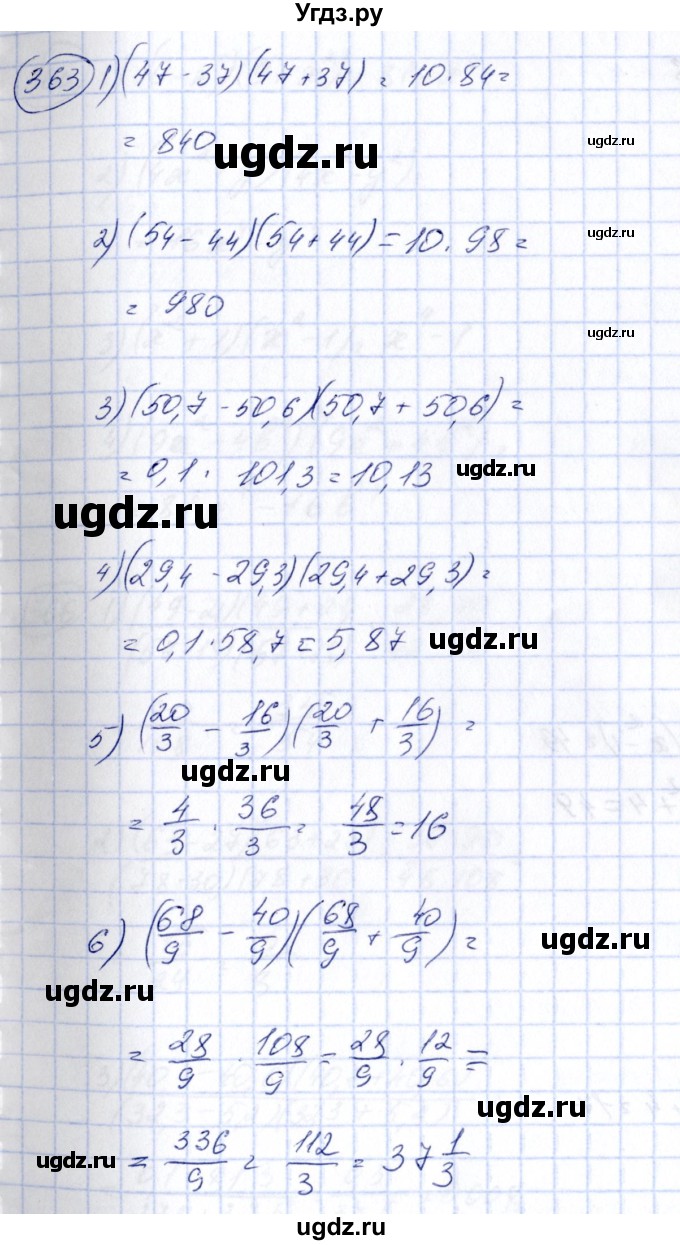 Угдз.ру
363 1) (47 - 37)(47 + 37) = 10 · 84 =
= 840
ugdz.ru
ugdz.ru
2) (54 - 44)(54 + 44) = 10 · 98 =
ugdz.ru
= 980
ugdz.ru
3) (50,7 - 50,6)(50,7 + 50,6) =
= 0,1 · 101,3 = 10,13
ugdz.ru
ugdz.ru
4) (29,4 - 29,3)(29,4 + 29,3) =
= 0,1 · 58,7 = 5,87
ugdz.ru
5) (20/3 - 16/3)(20/3 + 16/3) =
ugdz.ru
= 4/3 · 36/3 = 48/3 = 16
6) (68/9 - 40/9)(68/9 + 40/9) =
ugdz.ru
ugdz.ru
= 28/9 · 108/9 = 28/9 · 12/9 =
ugdz.ru
= 336/9 = 112/3 = 37 1/3
ugdz.ru
ugdz.ru